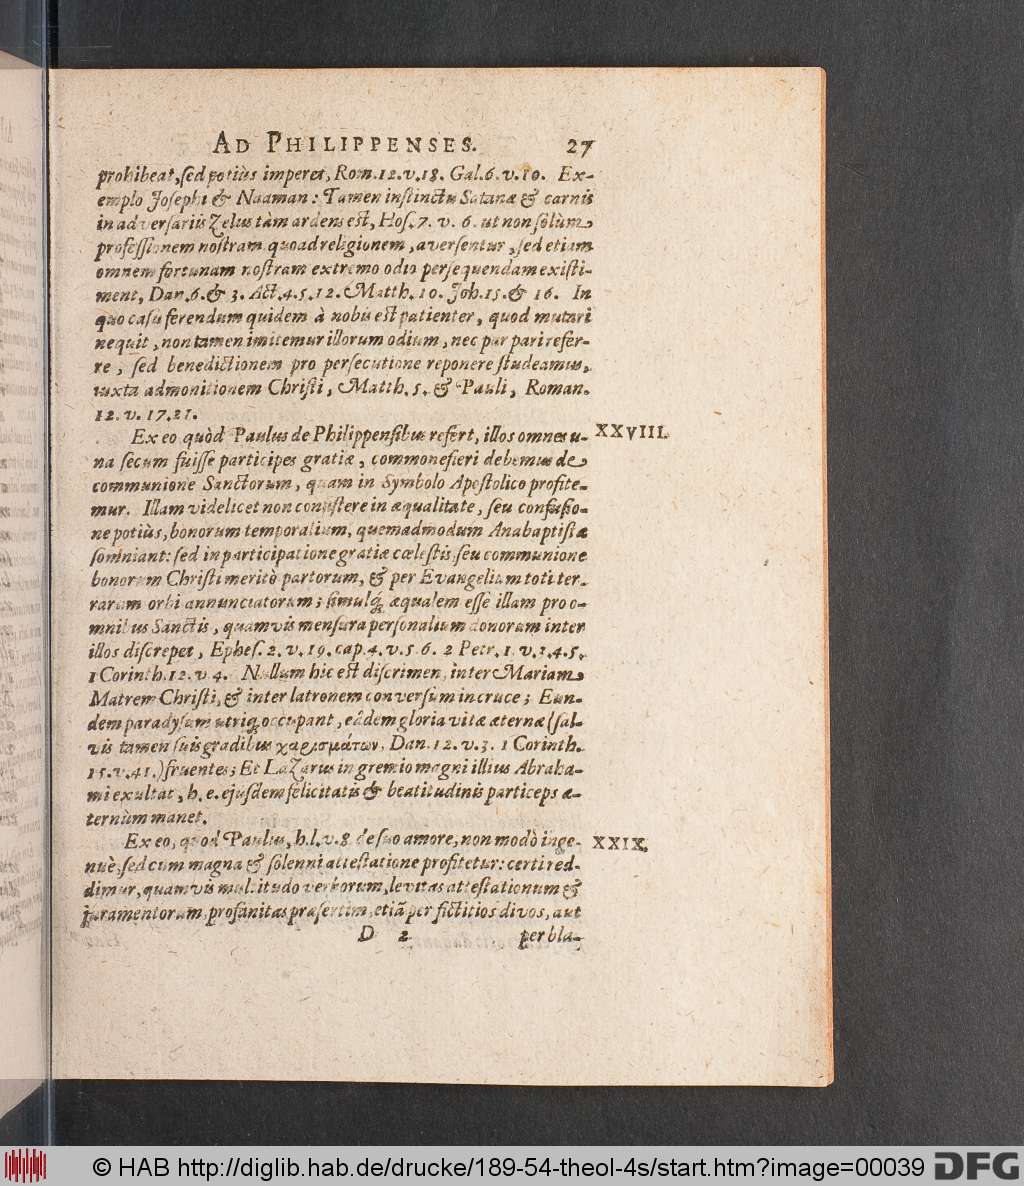 AD PHILIPPENSES. 27
prohibeat, ſed potiùs imperet, Rom. 12. v. 18. Gal. 6. v. 10. Ex-
emplo Joſephi & Naaman: Tamen inſtinctu Satanæ & carnis
in adverſariis Zelus tàm ardens eſt, Hoſ. 7. v. 6. ut non ſolùm
profeſſionem noſtram quoad religionem, averſentur, ſed etiam
omnem fortunam noſtram extremo odio perſequendam exiſti-
ment, Dan. 6. & 3. Act. 4. 5. 12. Matth. 10. Joh. 15. & 16. In
quo caſu ferendum quidem à nobis eſt patienter, quod mutari
nequit, non tamen imitemur illorum odium, nec par pari refer-
re, ſed benedictionem pro perſecutione reponere ſtudeamus,
iuxta admonitionem Chriſti, Matth. 5. & Pauli, Roman.
12. v. 17. 21.
Ex eo quòd Paulus de Philippenſibus refert, illos omnes u- XXVIII.
na ſecum fuiſſe participes gratiæ, commonefieri debemus de
communione Sanctorum, quam in Symbolo Apoſtolico profite-
mur. Illam videlicet non conſiſtere in æqualitate, ſeu confuſio-
ne potiùs, bonorum temporalium, quemadmodum Anabaptiſtæ
ſomniant: ſed in participatione gratiæ cœleſtis, ſeu communione
bonorum Chriſti meritò partorum, & per Evangelium toti ter-
rarum orbi annunciatorum; ſimulq́; æqualem eſſe illam pro o-
mnibus Sanctis, quamvis menſura perſonalium donorum inter
illos diſcrepet, Epheſ. 2. v. 19. cap. 4. v. 5. 6. 2 Petr. 1. v. 1. 4. 5.
1 Corinth. 12. v. 4. Nullum hic eſt diſcrimen, inter Mariam
Matrem Chriſti, & inter latronem converſum in cruce; Eun-
dem paradyſum utriq; occupant, eâdem gloria vitæ æternæ (ſal-
vis tamen ſuis gradibus χαρισμάτων, Dan. 12. v. 3. 1 Corinth.
15. v. 41.) fruentes; Et Lazarus in gremio magni illius Abraha-
mi exultat, h. e. ejuſdem felicitatis & beatitudinis particeps æ-
ternùm manet.
Ex eo, quod Paulus, h. l. v. 8. de ſuo amore, non modò inge- XXIX.
nuè, ſed cum magna & ſolenni atteſtatione profitetur: certi red-
dimur, quamvis multitudo verborum, levitas atteſtationum &
juramentorum, profanitas præſertim, etiã per fictitios divos, aut
D 2 per bla-
© HAB http://diglib.hab.de/drucke/189-54-theol-4s/start.htm?image=00039 DFG